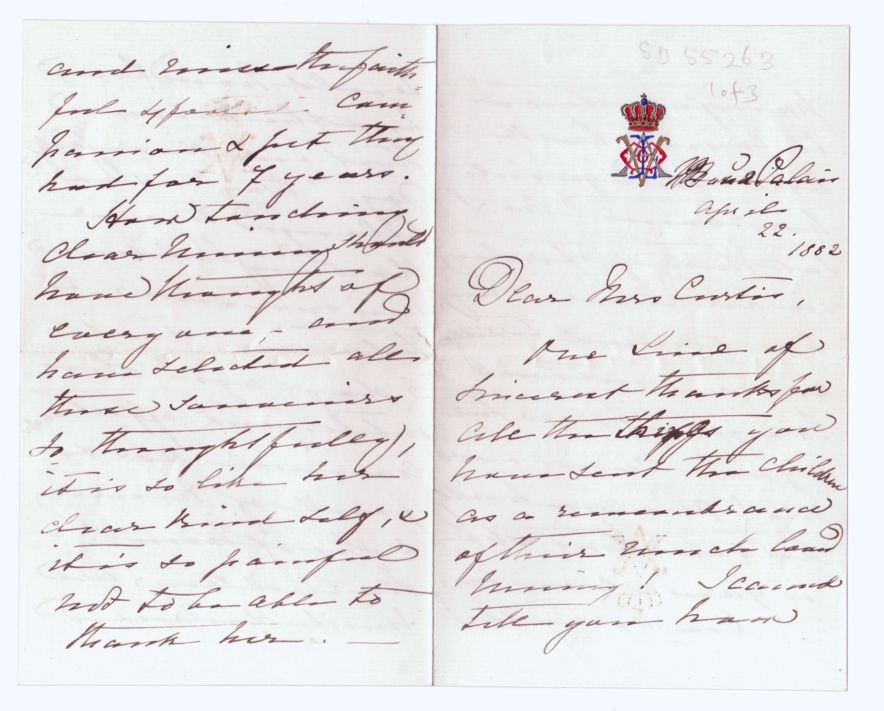 SD 55263
1 of 3
Palais
April
22.
1882
Dear Mrs Curtis,
One line of
sincerest thanks for
all the things you
have sent the children
as a remembrance
of their much loved
Minny! I cannot
tell you how
and miss the faith-
ful & com-
panion & pet they
had for 7 years.
How touching
dear Minny should
have thought of
every one, - and
have selected all
these souvenirs
so thoughtfully,
it is so like her
dear kind self, &
it is so painful
not to be able to
thank her. —